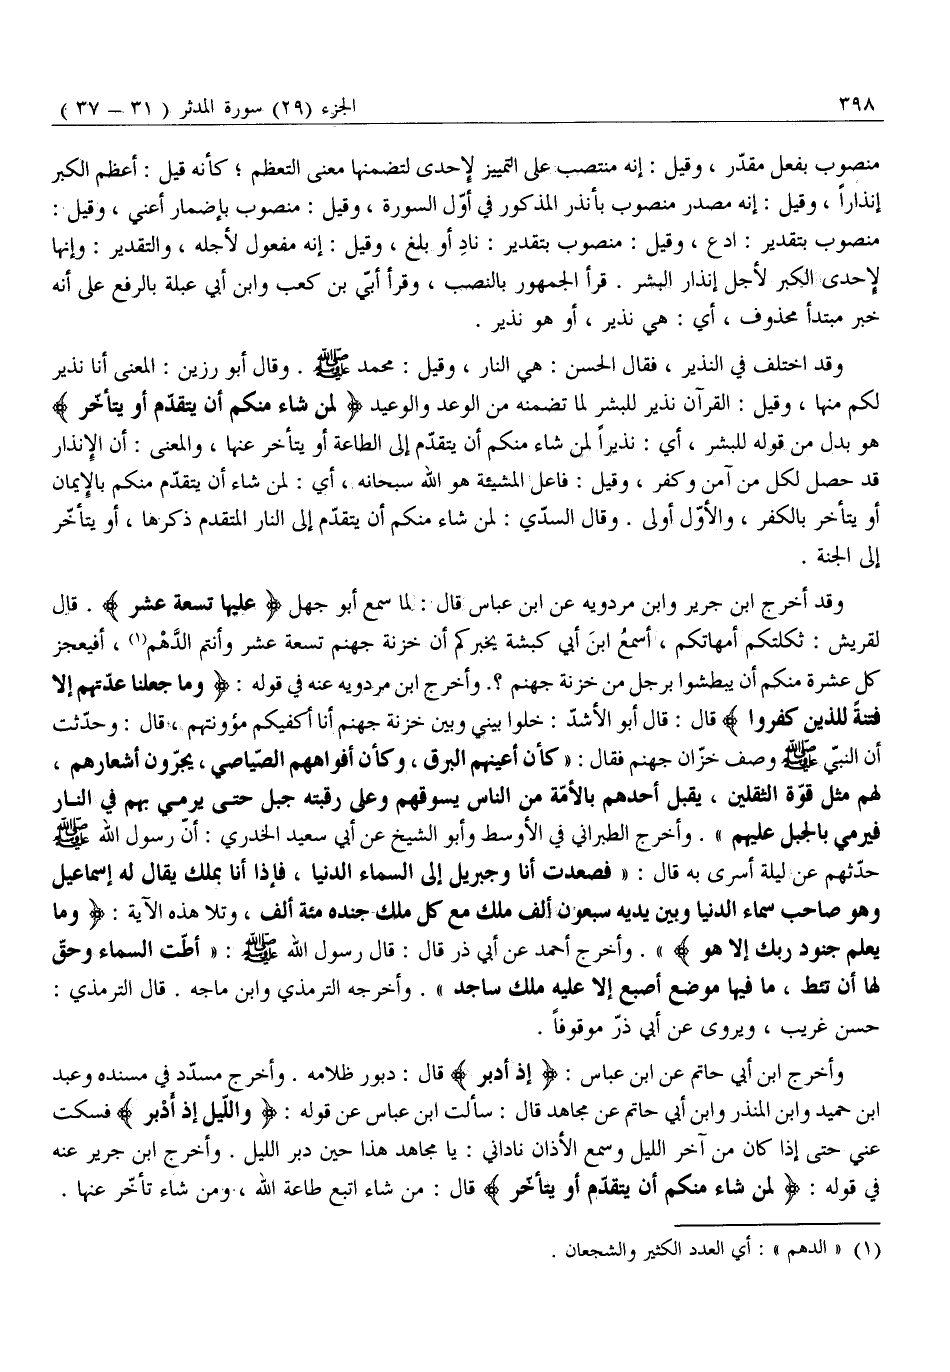 ٣٩٨ الجزء (٢٩) سورة المدثر ( ٣١ – ٣٧ )
منصوب بفعل مقدّر ، وقيل : إنه منتصب على التمييز لإحدى لتضمنها معنى التعظم ؛ كأنه قيل : أعظم الكبر
إنذاراً ، وقيل : إنه مصدر منصوب بأنذر المذكور في أوّل السورة ، وقيل : منصوب بإضمار أعني ، وقيل :
منصوب بتقدير : ادع ، وقيل : منصوب بتقدير : نادِ أو بلغ ، وقيل : إنه مفعول لأجله ، والتقدير : وإنها
لإحدى الكبر لأجل إنذار البشر . قرأ الجمهور بالنصب ، وقرأ أبيّ بن كعب وابن أبي عبلة بالرفع على أنه
خبر مبتدأ محذوف ، أي : هي نذير ، أو هو نذير .
وقد اختلف في النذير ، فقال الحسن : هي النار ، وقيل : محمد ﷺ . وقال أبو رزين : المعنى أنا نذير
لكم منها ، وقيل : القرآن نذير للبشر لما تضمنه من الوعد والوعيد ﴿ لمن شاء منكم أن يتقدّم أو يتأخّر ﴾
هو بدل من قوله للبشر ، أي : نذيراً لمن شاء منكم أن يتقدّم إلى الطاعة أو يتأخر عنها ، والمعنى : أن الإنذار
قد حصل لكل من آمن وكفر ، وقيل : فاعل المشيئة هو الله سبحانه ، أي : لمن شاء أن يتقدّم منكم بالإيمان
أو يتأخر بالكفر ، والأوّل أولى . وقال السدّي : لمن شاء منكم أن يتقدّم إلى النار المتقدم ذكرها ، أو يتأخّر
إلى الجنة .
وقد أخرج ابن جرير وابن مردويه عن ابن عباس قال : لما سمع أبو جهل ﴿ عليها تسعة عشر ﴾ . قال
لقريش : ثكلتكم أمهاتكم ، أسمعُ ابنَ أبي كبشة يخبركم أن خزنة جهنم تسعة عشر وأنتم الدَّهْم(١) ، أفيعجز
كل عشرة منكم أن يبطشوا برجل من خزنة جهنم ؟. وأخرج ابن مردويه عنه في قوله : ﴿ وما جعلنا عدّتهم إلا
فتنةً للذين كفروا ﴾ قال : قال أبو الأشدّ : خلوا بيني وبين خزنة جهنم أنا أكفيكم مؤونتهم ، قال : وحدّثت
أن النبيّ ﷺ وصف خزّان جهنم فقال : « كأن أعينهم البرق ، وكأن أفواههم الصّياصي ، يجرّون أشعارهم ،
لهم مثل قوّة الثقلين ، يقبل أحدهم بالأمّة من الناس يسوقهم وعلى رقبته جبل حتى يرمي بهم في النار
فيرمي بالجبل عليهم » . وأخرج الطبراني في الأوسط وأبو الشيخ عن أبي سعيد الخدري : أنّ رسول الله ﷺ
حدّثهم عن ليلة أسرى به قال : « فصعدت أنا وجبريل إلى السماء الدنيا ، فإذا أنا بملك يقال له إسماعيل
وهو صاحب سماء الدنيا وبين يديه سبعون ألف ملك مع كل ملك جنده مئة ألف ، وتلا هذه الآية : ﴿ وما
يعلم جنود ربك إلا هو ﴾ » . وأخرج أحمد عن أبي ذر قال : قال رسول الله ﷺ : « أطّت السماء وحقّ
لها أن تئط ، ما فيها موضع أصبع إلا عليه ملك ساجد » . وأخرجه الترمذي وابن ماجه . قال الترمذي :
حسن غريب ، ويروى عن أبي ذرّ موقوفاً .
وأخرج ابن أبي حاتم عن ابن عباس : ﴿ إذ أدبر ﴾ قال : دبور ظلامه . وأخرج مسدّد في مسنده وعبد
ابن حميد وابن المنذر وابن أبي حاتم عن مجاهد قال : سألت ابن عباس عن قوله : ﴿ واللّيل إذ أَدْبر ﴾ فسكت
عني حتى إذا كان من آخر الليل وسمع الأذان ناداني : يا مجاهد هذا حين دبر الليل . وأخرج ابن جرير عنه
في قوله : ﴿ لمن شاء منكم أن يتقدّم أو يتأخّر ﴾ قال : من شاء اتبع طاعة الله ، ومن شاء تأخّر عنها .
(١) « الدهم » : أي العدد الكثير والشجعان .